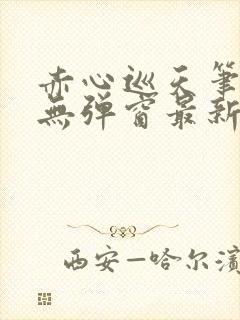 赤心巡天筆
無弹窗最新
西安—哈尔濱